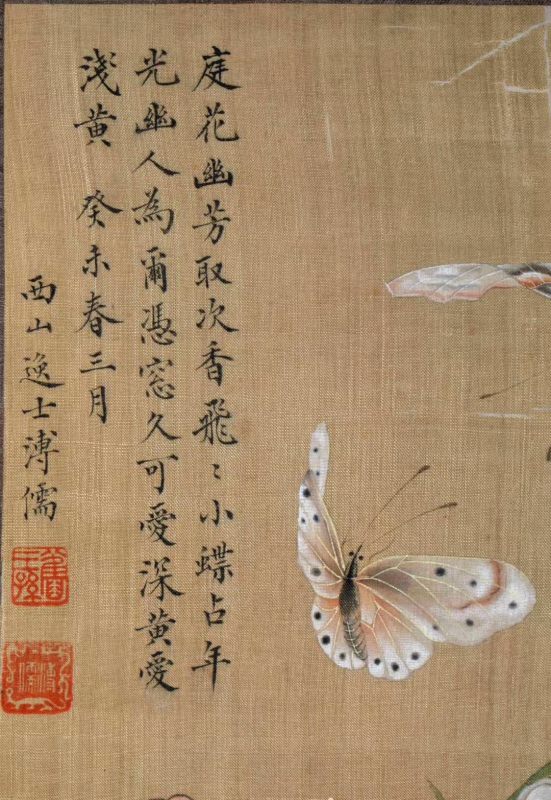 庭花幽芳取次香飛〻小蝶占年
光幽人為爾憑窓久可愛深黄愛
淺黄 癸未春三月
西山逸士溥儒
舊王孫
溥儒